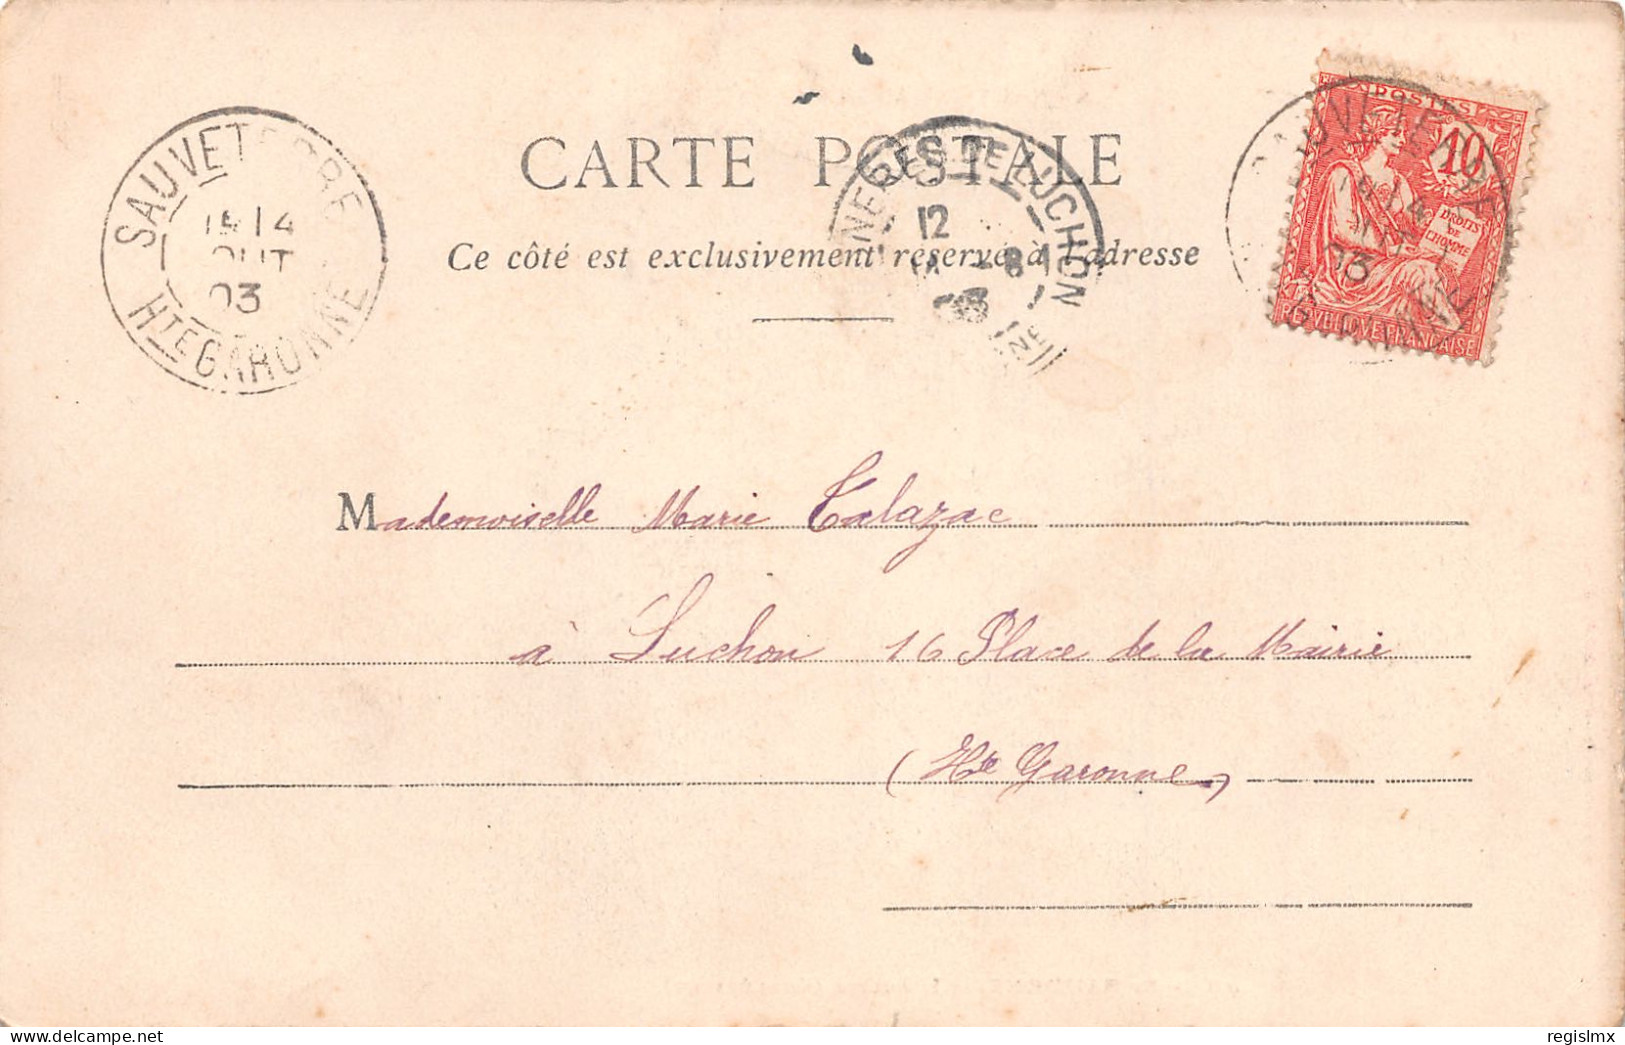 CARTE POSTALE
Ce côté est exclusivement réservé à l'adresse
SAUVETERRE
14
03
HTE GARONNE
DE LUCHON
12
POSTES
10
DROITS
DE
L'HOMME
REPUBLIQUE FRANCAISE
Mademoiselle Marie Talazac
à Luchon 16 Place de la Mairie
(Hte Garonne)
regislmx